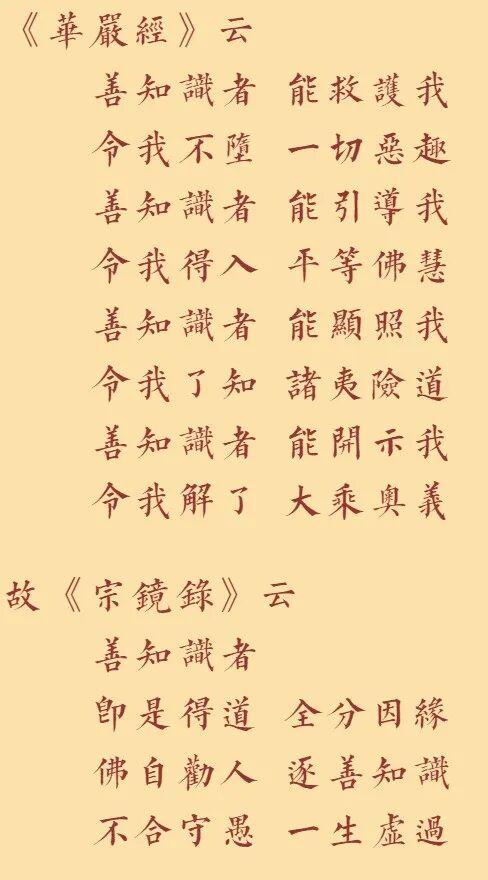 《華嚴經》云
善知識者 能救護我
令我不墮 一切惡趣
善知識者 能引導我
令我得入 平等佛慧
善知識者 能顯照我
令我了知 諸夷險道
善知識者 能開示我
令我解了 大乘奧義
故《宗鏡錄》云
善知識者
卽是得道 全分因緣
佛自勸人 逐善知識
不合守愚 一生虛過